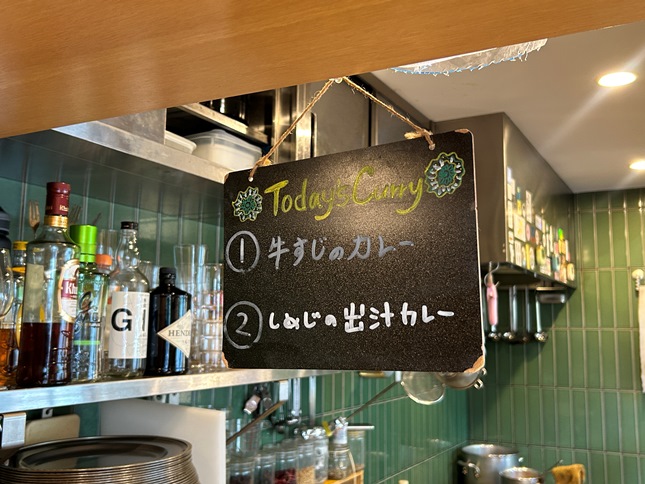 Today's Curry
① 牛すじのカレー
② しめじの出汁カレー
GI
HEND